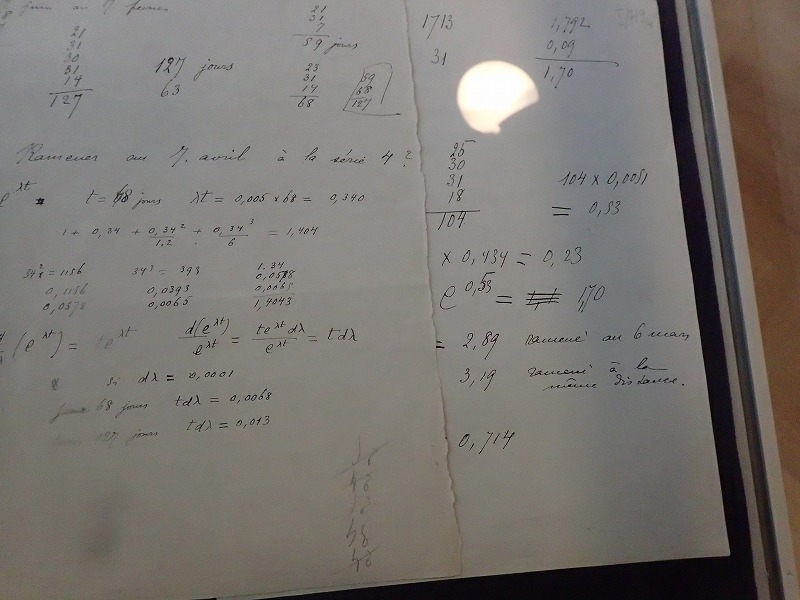 21
31
7
59 jours
21
31
30
31
14
127
127 jours
63
23
31
14
68
59
68
127
Ramener au 7. avril à la série 4 ?
e^λt t = 68 jours λt = 0,005 × 68 = 0,340
1 + 0,34 + 0,34²/1.2 + 0,34³/6 = 1,404
34² = 1156 34³ = 393 1.34
0,1156 0,0393 0,0578
0,0578 0,0065 0,0065
1,4043
(e^λt) = te^λt d(e^λt)/e^λt = te^λt dλ/e^λt = tdλ
si dλ = 0,0001
68 jours tdλ = 0,0068
127 jours tdλ = 0,013
1713 1,792
31 0,09
1,70
25
30
31
18
104
104 × 0,0051
= 0,53
× 0,434 = 0,23
e^0,53 = 1,70
= 2,89 ramené au 6 mars
3,19 ramené à la
même distance.
0,714